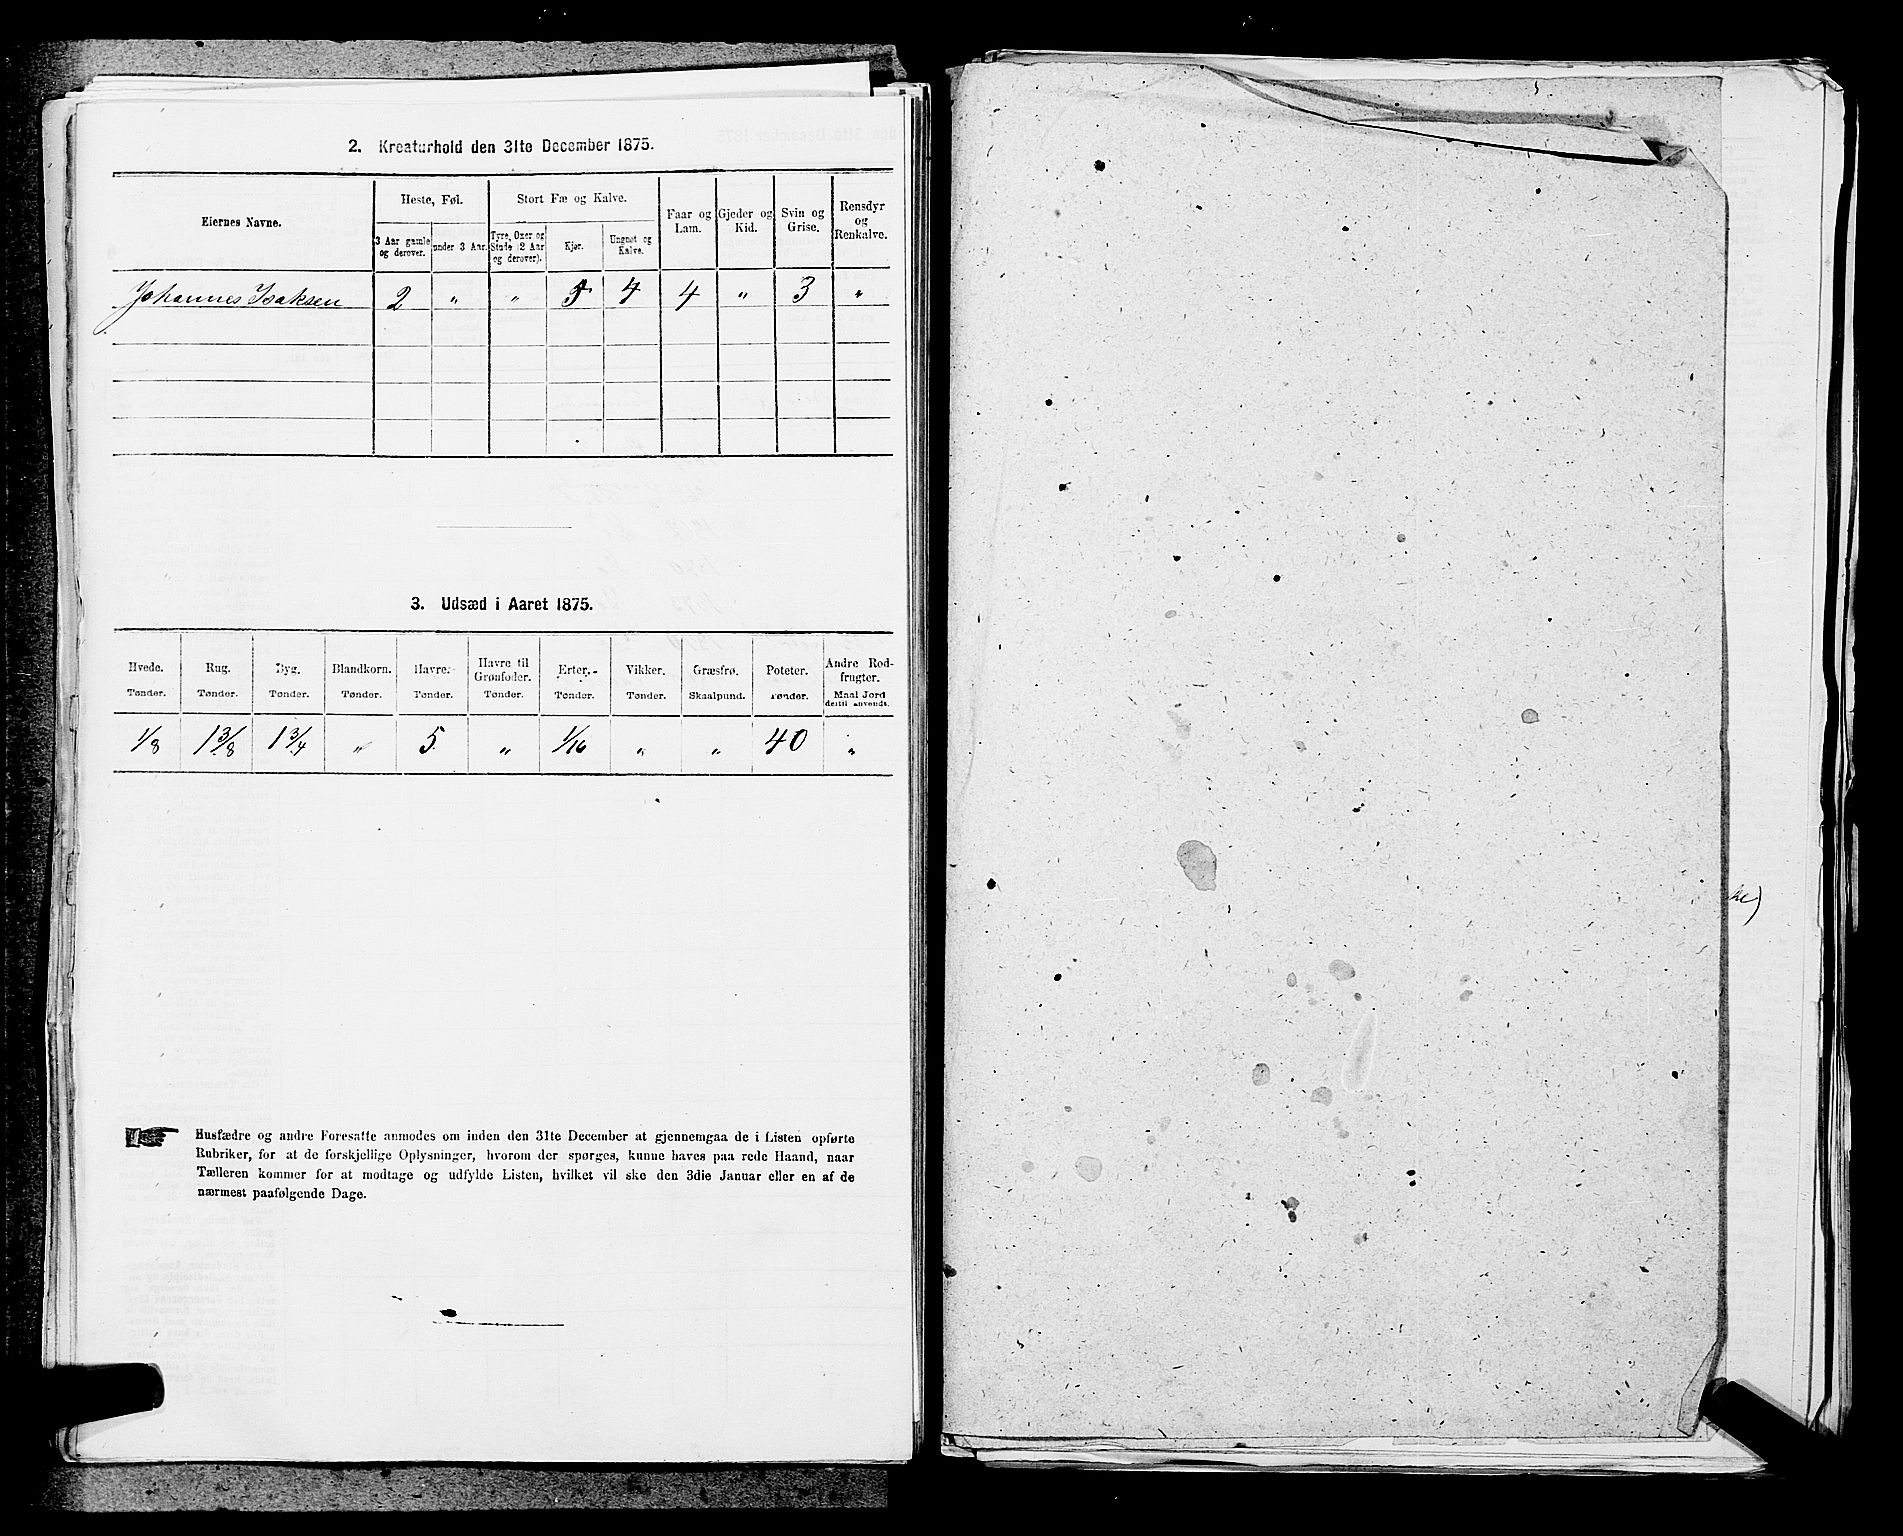 2. Kreaturhold den 31te December 1875.
Eiernes Navne.
Heste, Føl.
Stort Fæ og Kalve.
Faar og Lam.
Gjeder og Kid.
Svin og Grise.
Rensdyr og Renkalve.
3 Aar gamle og derover.
under 3 Aar.
Tyre, Oxer og Stude (2 Aar og derover).
Kjør.
Ungnøt og Kalve.
Johannes Isaksen 2 " " 4 4 " 3 "
3. Udsæd i Aaret 1875.
Hvede. Rug. Byg. Blandkorn. Havre. Havre til Grønfoder. Erter. Vikker. Græsfrø. Poteter. Andre Rodfrugter.
Tønder. Tønder. Tønder. Tønder. Tønder. Tønder. Tønder. Tønder. Skaalpund. Tønder. Maal Jord dertil anvendt.
1/8 1 3/8 1 3/4 " 5 " 1/16 " " 40 "
Husfædre og andre Foresatte anmodes om inden den 31te December at gjennemgaa de i Listen opførte
Rubriker, for at de forskjellige Oplysninger, hvorom der spørges, kunne haves paa rede Haand, naar
Tælleren kommer for at modtage og udfylde Listen, hvilket vil ske den 3die Januar eller en af de
nærmest paafølgende Dage.